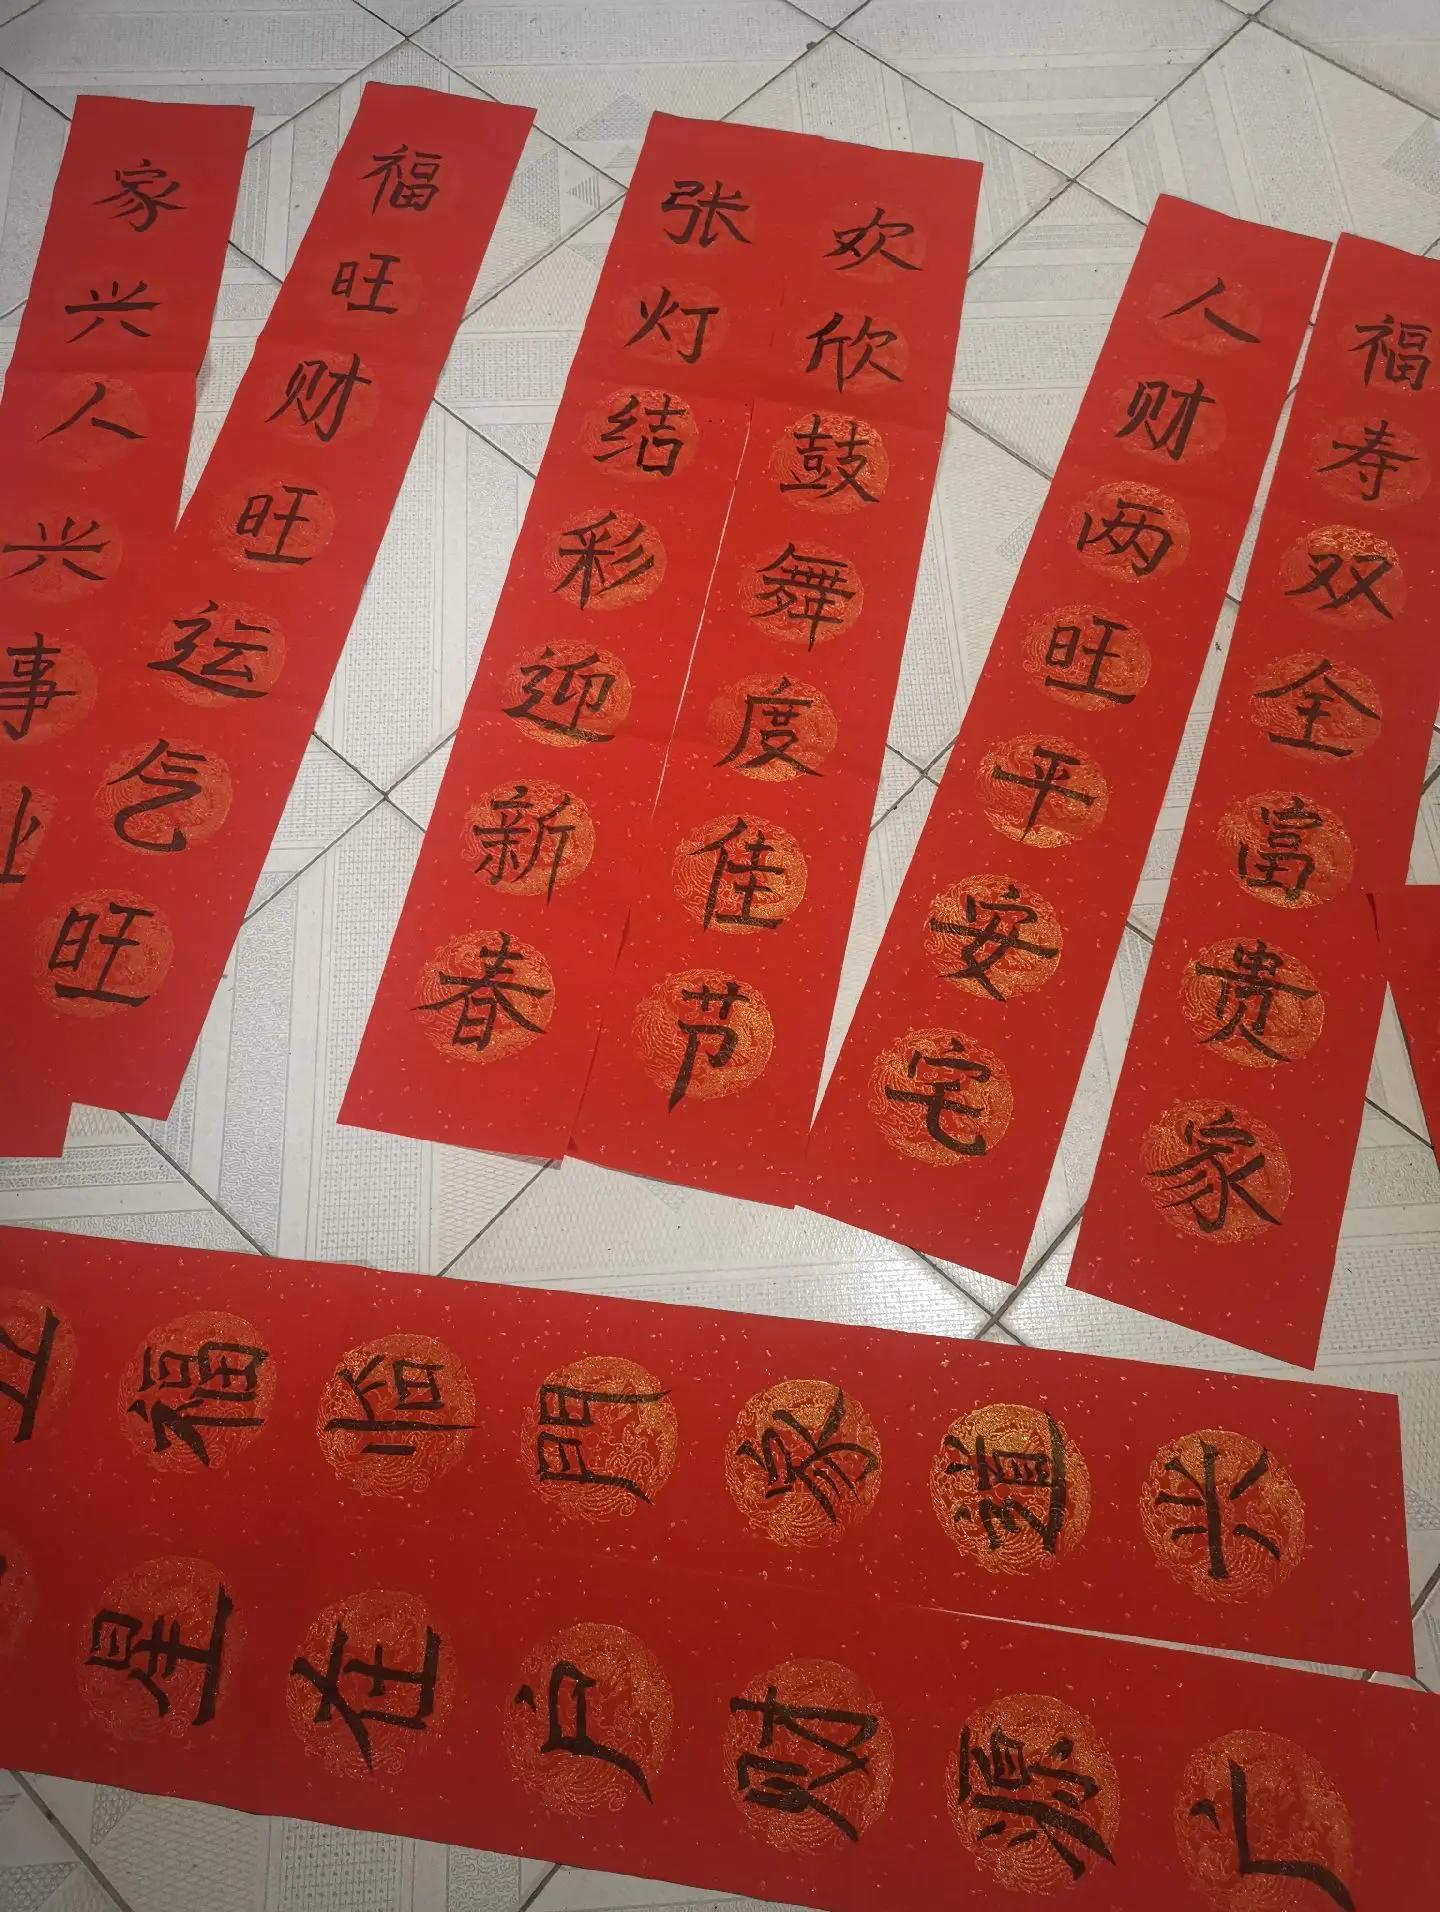 家兴人兴事业
福旺财旺运气旺
张灯结彩迎新春
欢欣鼓舞度佳节
人财两旺平安宅
福寿双全富贵家
五福临門家道兴
星在户财源广